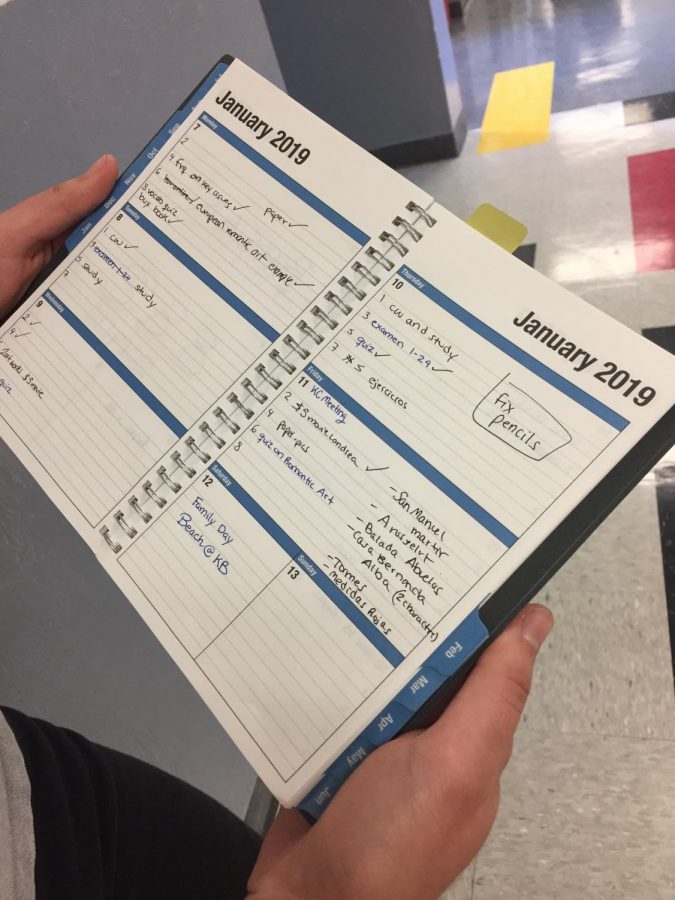 January 2019
Monday
7
2
4 frq on key issues ✓ paper ✓
6 european romantic art example ✓
3 vocab quiz
buy book ✓
Tuesday
8
1 cw ✓
3 examen 1-24 study
5 study
7
Wednesday
9
2 ✓
4 ✓
$3 movie
quiz
January 2019
Thursday
10
1 cw and study
3 examen 1-24 ✓
5 quiz ✓
7 5 ejercicios
Fix
pencils
Friday
11
KC Meeting
2 $3 movie ✓
4 paper pcs
6 quiz on Romantic Art
8
- San Manuel
martir
- Balada Abuelos
- Casa Bernarda
Alba (2 character)
- Torres
- medidas Rojas
Saturday
12
Family Day
Beach @ KB
Sunday
13
Sep
Oct
Nov
Dec
Jan
Feb
Mar
Apr
May
Jun